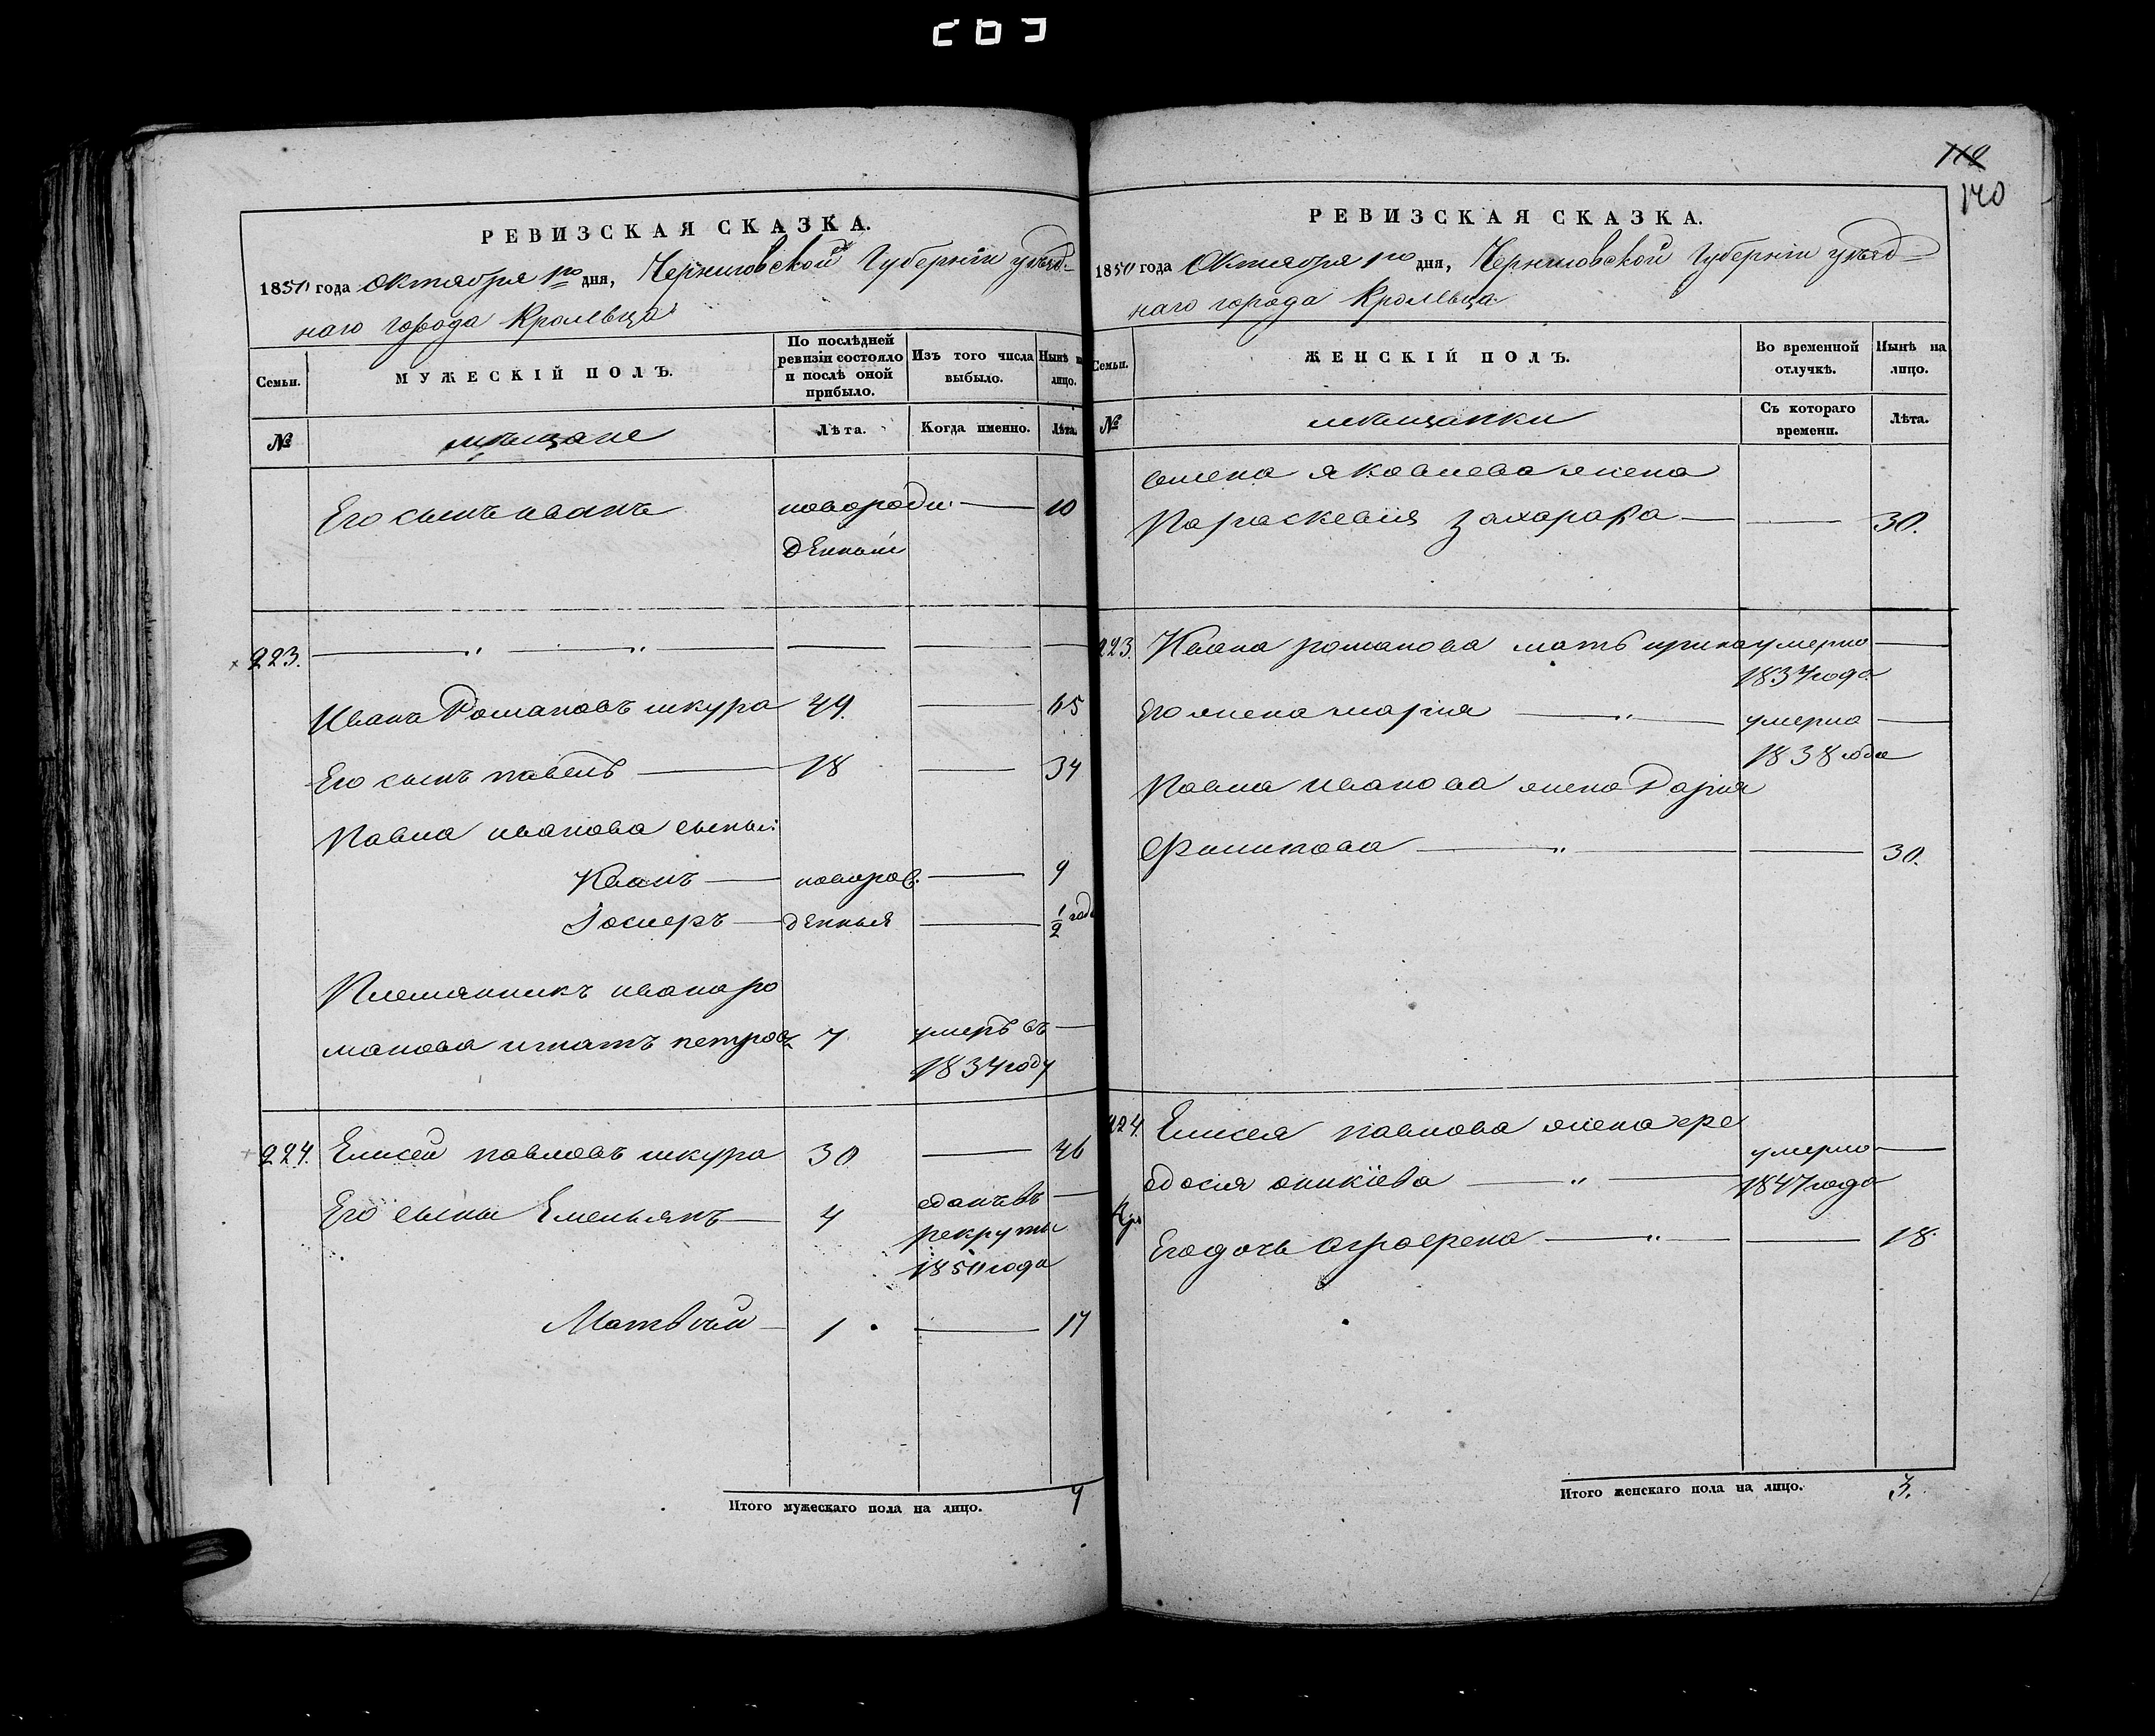 112
140
РЕВИЗСКАЯ СКАЗКА.
1850 года Октября 1го дня, Черниговской Губернiи уѣзд-
наго города Кролевца
Семьи.
МУЖЕСКIЙ ПОЛЪ.
По послѣдней ревизiи состояло и послѣ оной прибыло.
Изъ того числа выбыло.
Нынѣ на лицо.
№
мѣщане
Лѣта.
Когда именно.
Лѣта.
Его сынъ иванъ новорож 10
денный
223.
Иванъ Романовъ шкура 49. 65
Его сынъ павелъ 18 34
Павла иванова сыны:
Иванъ новорож. 9
денныя 1/2 года
Племянникъ ивана ро
манова игнатъ петровъ 7 умеръ въ
1834 году
224. Елисей павловъ шкура 30 46
Его сыны Емельянъ 4 сданъ въ
рекруты
1850 года
Матвѣй 1 17
Итого мужескаго пола на лицо. 7
РЕВИЗСКАЯ СКАЗКА.
1850 года Октября 1го дня, Черниговской Губернiи уѣзд-
наго города Кролевца
Семьи.
ЖЕНСКIЙ ПОЛЪ.
Во временной отлучкѣ.
Нынѣ на лицо.
№
мѣщанки
Съ котораго времени.
Лѣта.
яковлева жена
Параскевiя захарова 30.
223. Ивана романова мать ирина умерла
1834 года
Его жена марiя умерла
1838 года
Павла иванова жена Дарiя
Филипова 30.
224. Елисея павлова жена фе
одосiя оникiева умерла
1847 года
Его дочь аграфена 18.
Итого женскаго пола на лицо. 3.